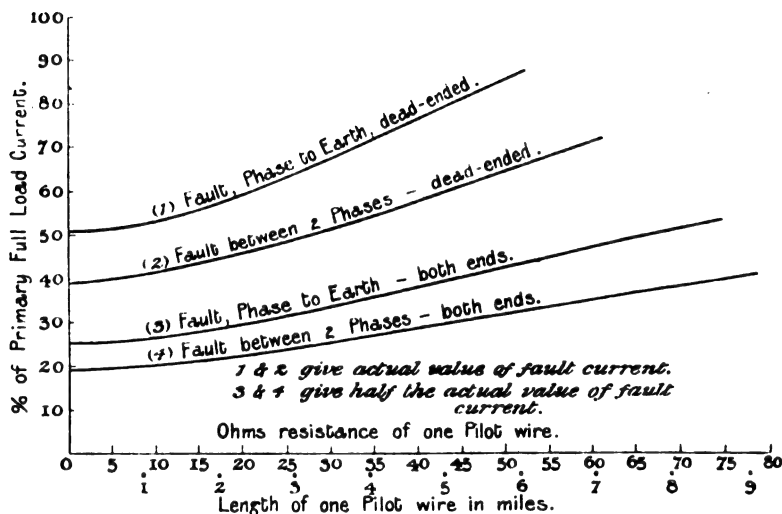 100
90
80
70
60
50
40
30
20
10
% of Primary Full Load Current.
(1) Fault, Phase to Earth, dead-ended.
(2) Fault between 2 Phases - dead-ended.
(3) Fault, Phase to Earth - both ends.
(4) Fault between 2 Phases - both ends.
1 & 2 give actual value of fault current.
3 & 4 give half the actual value of fault
current.
Ohms resistance of one Pilot wire.
0 5 10 15 20 25 30 35 40 45 50 55 60 65 70 75 80
1 2 3 4 5 6 7 8 9
Length of one Pilot wire in miles.